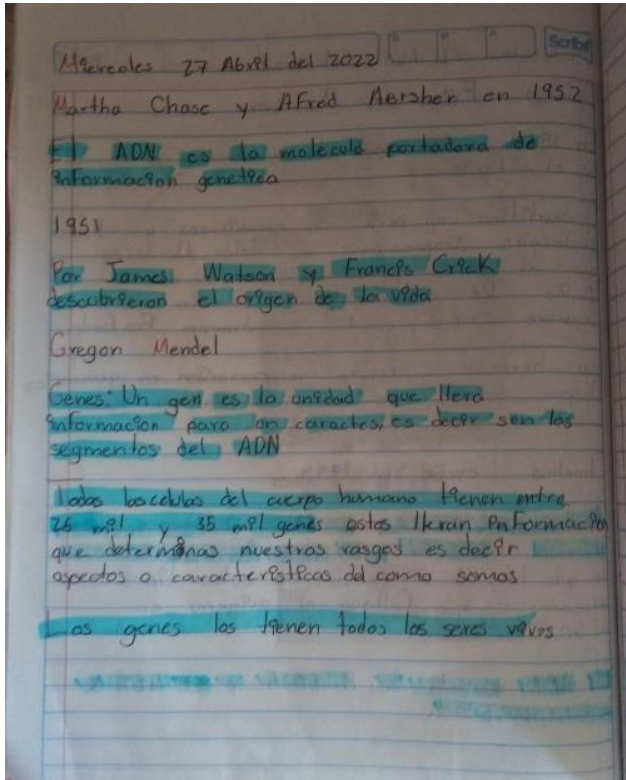 Scribe
Miercoles 27 Abril del 2022
Martha Chase y Afred Aersher en 1952
El ADN es la molecula portadora de
informacion genetica
1951
Por James Watson y Francis Crick
descubrieron el origen de la vida
Gregon Mendel
Genes: Un gen es la unidad que lleva
informacion para un caracter, es decir son los
segmentos del ADN
Todas las celulas del cuerpo humano tienen entre
25 mil y 35 mil genes estos llevan informacion
que determinas nuestros rasgos es decir
aspectos o caracteristicas del como somos
Los genes los tienen todos los seres vivos